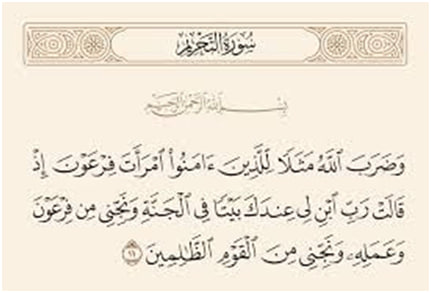 سُورَةُ التَّحْرِيمِ
بِسْمِ اللَّهِ الرَّحْمَٰنِ الرَّحِيمِ
وَضَرَبَ ٱللَّهُ مَثَلًا لِّلَّذِينَ ءَامَنُواْ ٱمْرَأَتَ فِرْعَوْنَ إِذْ
قَالَتْ رَبِّ ٱبْنِ لِي عِندَكَ بَيْتًا فِي ٱلْجَنَّةِ وَنَجِّنِي مِن فِرْعَوْنَ
وَعَمَلِهِۦ وَنَجِّنِي مِنَ ٱلْقَوْمِ ٱلظَّٰلِمِينَ ١١